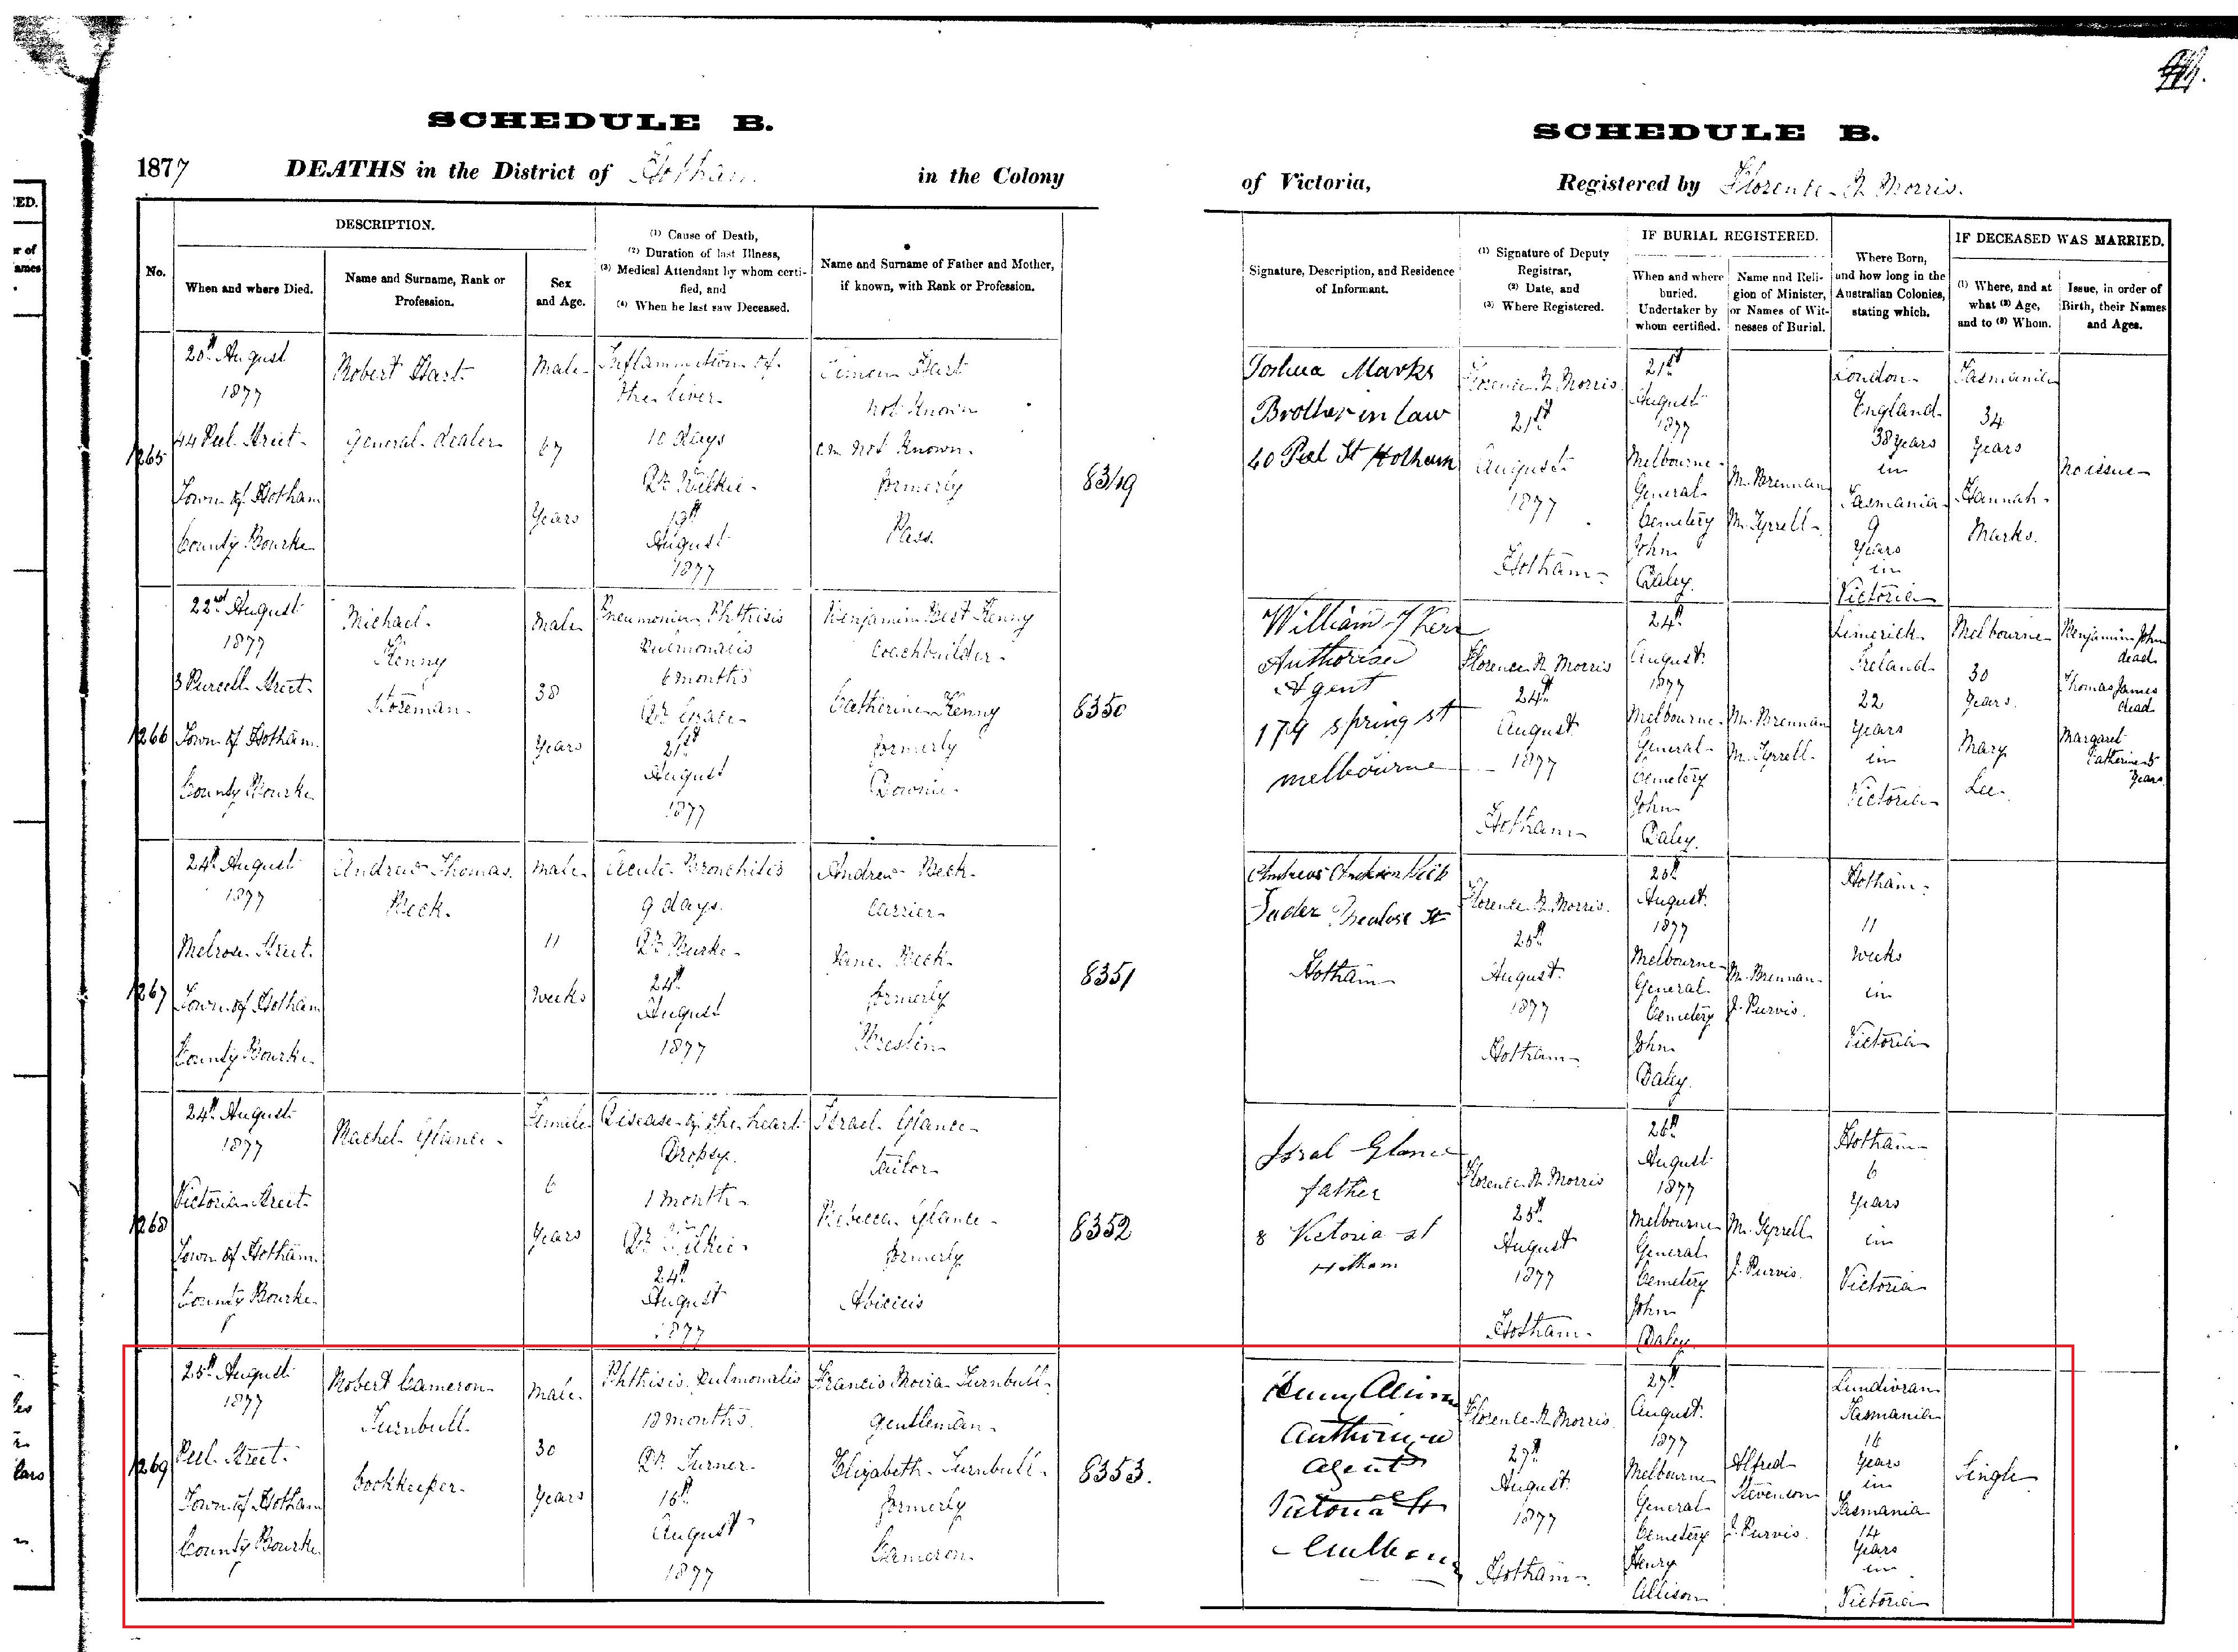 SCHEDULE B.
1877 DEATHS in the District of Hotham in the Colony
No.
DESCRIPTION.
When and where Died.
Name and Surname, Rank or
Profession.
Sex
and Age.
(1) Cause of Death,
(2) Duration of last Illness,
(3) Medical Attendant by whom certi-
fied, and
(4) When he last saw Deceased.
Name and Surname of Father and Mother,
if known, with Rank or Profession.
SCHEDULE B.
of Victoria, Registered by Florence R Morris.
Signature, Description, and Residence
of Informant.
(1) Signature of Deputy
Registrar,
(2) Date, and
(3) Where Registered.
IF BURIAL REGISTERED.
When and where
buried.
Undertaker by
whom certified.
Name and Reli-
gion of Minister,
or Names of Wit-
nesses of Burial.
Where Born,
and how long in the
Australian Colonies,
stating which.
IF DECEASED WAS MARRIED.
(1) Where, and at
what (2) Age,
and to (3) Whom.
Issue, in order of
Birth, their Names
and Ages.
1265
20th August
1877
44 Peel Street
Town of Hotham
County Bourke
Robert Hart
General dealer
Male
67
Years
Inflammation of
the liver
10 days
Dr Wilkie
19th
August
1877
Hart
not known
not known
formerly
Pass
8349
Joshua Marks
Brother in law
40 Peel St Hotham
Florence R Morris
21st
August
1877
Hotham
21st
August
1877
Melbourne
General
Cemetery
John
Daley
M. Brennan
M. Tyrrell
London
England
38 years
in
Tasmania
9
Years
in
Victoria
Tasmania
34
Years
Hannah
Marks.
No issue
1266
22nd August
1877
3 Purcell Street
Town of Hotham
County Bourke
Michael
Kenny
Storeman
Male
38
Years
Pneumonia Phthisis
Pulmonalis
6 months
Dr Grace
21st
August
1877
Benjamin Kenny
Coachbuilder
Catherine Kenny
formerly
8350
William J Kerr
Authorised
Agent
179 Spring st
melbourne
Florence R Morris
24th
August
1877
Hotham
24th
August
1877
Melbourne
General
Cemetery
John
Daley.
M. Brennan
M. Tyrrell
Limerick
Ireland
22
Years
in
Victoria
Melbourne
30
Years
Mary
Lee
Benjamin John
dead
Thomas James
dead
Margaret
Catherine 5
Years
1267
24th August
1877
Melrose Street
Town of Hotham
County Bourke
Andrew Thomas
Beck
Male
11
Weeks
Acute Bronchitis
9 days
Dr Burke
24th
August
1877
Andrew Beck
Carrier
Jane Beck
formerly
Breslin
8351
Andrew
Melrose St
Hotham
Florence R Morris.
25th
August
1877
Hotham
25th
August
1877
Melbourne
General
Cemetery
John
Daley.
M. Brennan
J. Purvis.
Hotham
11
Weeks
in
Victoria
1268
24th August
1877
Victoria Street
Town of Hotham
County Bourke
Rachel Glance
Female
6
Years
Disease of the heart
Dropsy.
1 month
Dr Wilkie
24th
August
1877
Israel Glance
Tailor
Rebecca Glance
formerly
8352
Isral Glance
father
8 Victoria st
Hotham
Florence R Morris
25th
August
1877
Hotham
26th
August
1877
Melbourne
General
Cemetery
John
Daley
M. Tyrrell
J. Purvis.
Hotham
6
Years
in
Victoria
1269
25th August
1877
Peel Street
Town of Hotham
County Bourke
Robert Cameron
Turnbull
bookkeeper
Male
30
Years
Phthisis Pulmonalis
18 months
Dr Turner
16th
August
1877
Francis Moira Turnbull
gentleman
Elizabeth Turnbull
formerly
Cameron
8353.
Henry
Authorised
Agent
Victoria St
Florence R Morris.
27th
August
1877
Hotham
27th
August.
1877
Melbourne
General
Cemetery
Henry
Allison
Alfred
Stevenson
J. Purvis.
Tasmania
16
Years
in
Tasmania
14
Years
in
Victoria
Single